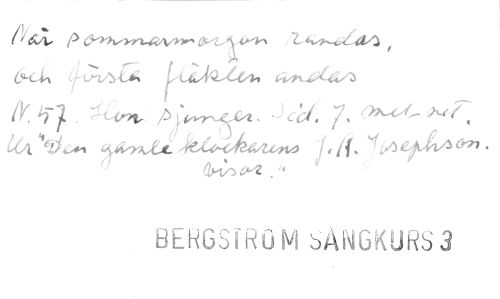 När sommarmorgon randas,
och första fläkten andas
N. 57. Hon sjunger. Sid. 7. met-net.
Ur "Den gamle klockarens J. A. Josephson.
visor."
BERGSTRÖM SÅNGKURS 3